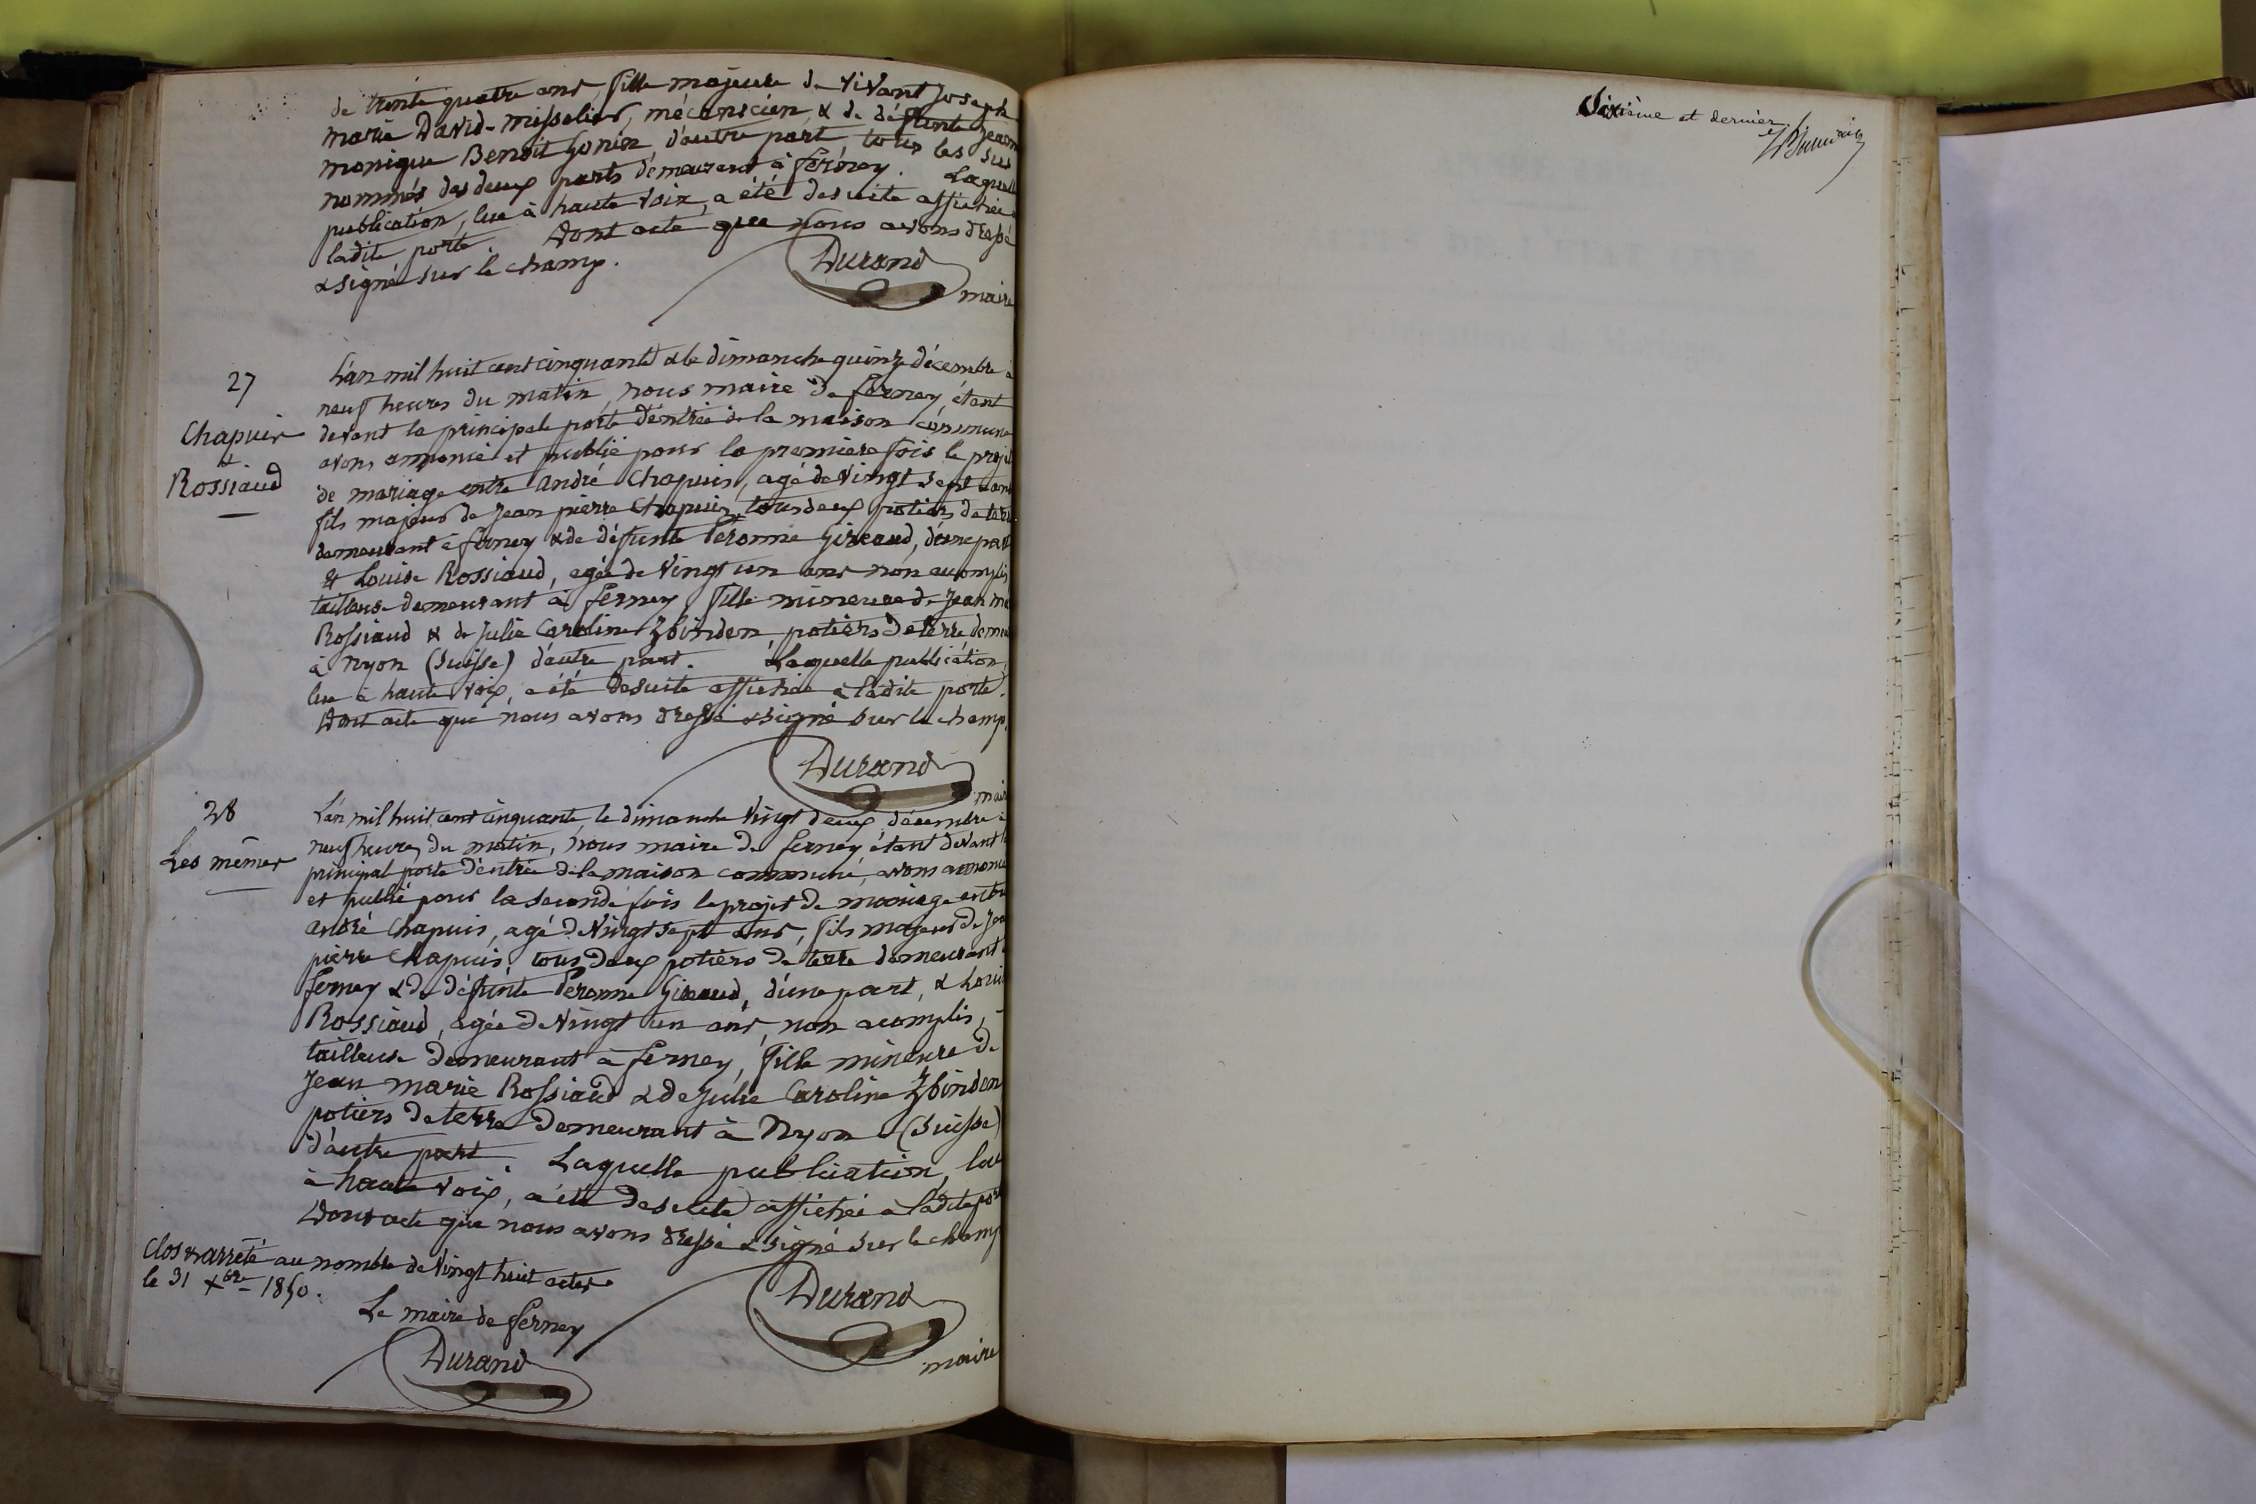 de trente quatre ans, fille majeure de vivant Joseph
marie David-Misselier, mécanicien, & de défunte Jeanne
monique Benoit Gonin d'autre part tous les sus
nommés des deux parts demeurant à ferney. Laquelle
publication, lue à haute voix, a été desuite affichée à
ladite porte. Dont acte que nous avons dressé
& signé sur le champ.
Durand
maire
27
Chapuis
&
Rossiaud
L'an mil huit cent cinquante & le dimanche quinze décembre à
neuf heures du matin, nous maire de ferney, étant
devant la principale porte d'entrée de la maison commune
avons annoncé et publié pour la première fois le projet
de mariage entre andré Chapuis, agé de vingt sept ans
fils majeur de Jean pierre Chapuis, tous deux potiers de terre
demeurant à ferney & de défunte Peronne Giraud, d'une part
& Louise Rossiaud, agée de vingt un ans non accomplis
tailleuse demeurant à ferney fille mineure de Jean ma
Rossiaud & de Julie Caroline Zbinden, potiers de terre demeu
à Nyon (Suisse) d'autre part. Laquelle publication,
lue à haute voix, a été desuite affichée à ladite porte.
Dont acte que nous avons dressé & signé sur le champ.
Durand
maire
28
Les mêmes
L'an mil huit cent cinquante le dimanche vingt deux décembre à
neuf heures du matin, nous maire de ferney étant devant la
principal porte d'entrée de la maison commune, avons annoncé
et publié pour la seconde fois le projet de mariage entre
andré Chapuis, agé de vingt sept ans, fils majeur de Jean
pierre Chapuis, tous deux potiers de terre demeurant à
ferney & de défunte Peronne Giraud, d'une part, & Louise
Rossiaud, agée de vingt un ans, non acomplis,
tailleuse demeurant à ferney, fille mineure de
Jean marie Rossiaud & de Julie Caroline Zbinden
potiers de terre demeurant à Nyon (Suisse)
d'autre part. Laquelle publication, lue
à haute voix, a été desuite affichée à ladite porte
Dont acte que nous avons dressé & signé sur le champ
Clos & arrêté au nombre de vingt huit actes
le 31 Xbre 1850.
Le maire de ferney
Durand
Durand
maire
Sixième et dernier.